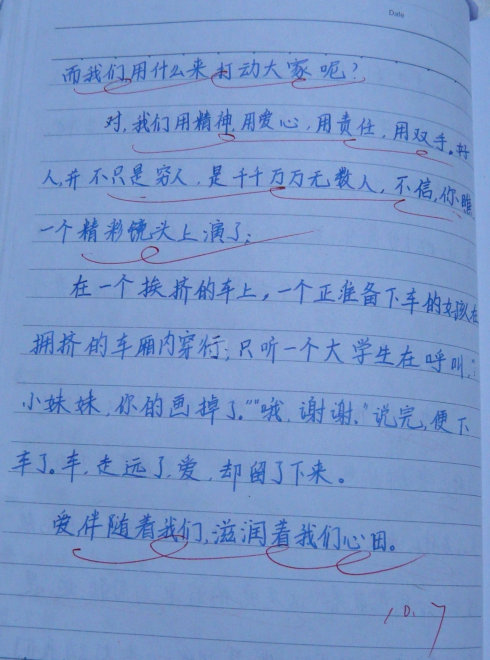 Date
而我们用什么来打动大家呢？
对，我们用精神，用爱心，用责任，用双手。好
人，并不只是穷人，是千千万万无数人，不信，你瞧
一个精彩镜头上演了：
在一个挨挤的车上，一个正准备下车的女孩在
拥挤的车厢内穿行；只听一个大学生在呼叫：“
小妹妹，你的画掉了。”“哦，谢谢。”说完，便下
车了。车，走远了，爱，却留了下来。
爱，伴随着我们，滋润着我们心田。
10.7